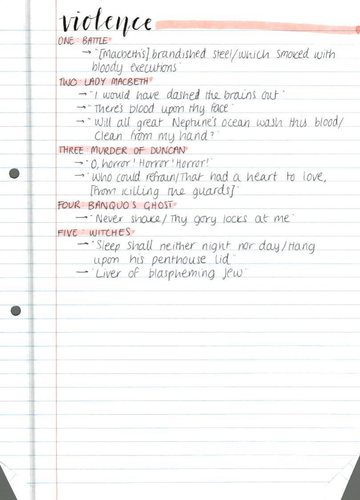 violence
ONE BATTLE
→ "[Macbeth's] brandished steel/which smoked with
bloody executions"
TWO LADY MACBETH
→ "I would have dashed the brains out"
→ "There's blood upon thy face"
→ "Will all great Neptune's ocean wash this blood/
Clean from my hand?"
THREE MURDER OF DUNCAN
→ "O, horror! Horror! Horror!"
→ "Who could refrain/That had a heart to love,
[From killing the guards]"
FOUR BANQUO'S GHOST
→ "Never shake/Thy gory locks at me"
FIVE WITCHES
→ "Sleep shall neither night nor day/Hang
upon his penthouse lid"
→ "Liver of blaspheming Jew"